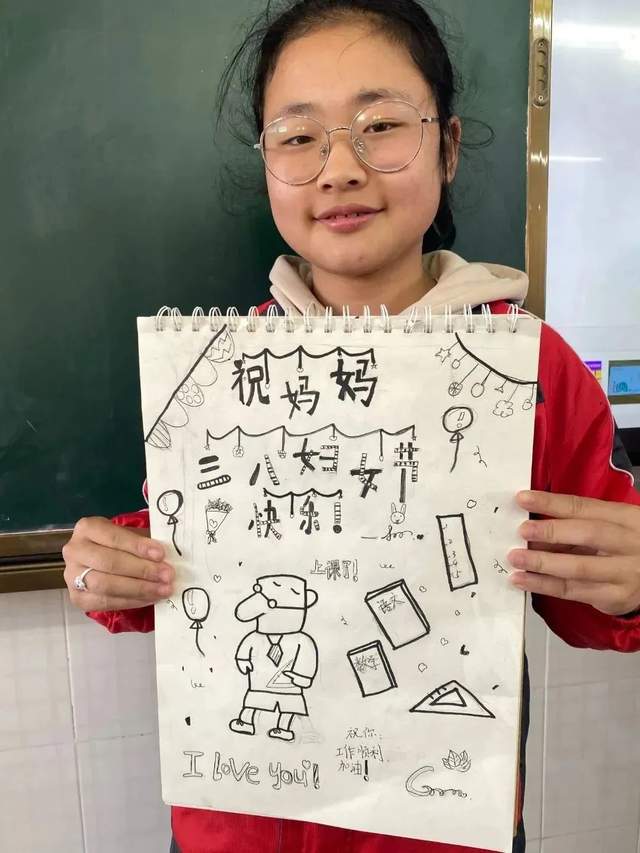 祝妈妈
三八妇女节
快乐!
上课了!
语文
数学
祝你:
工作顺利
加油!
I love you!